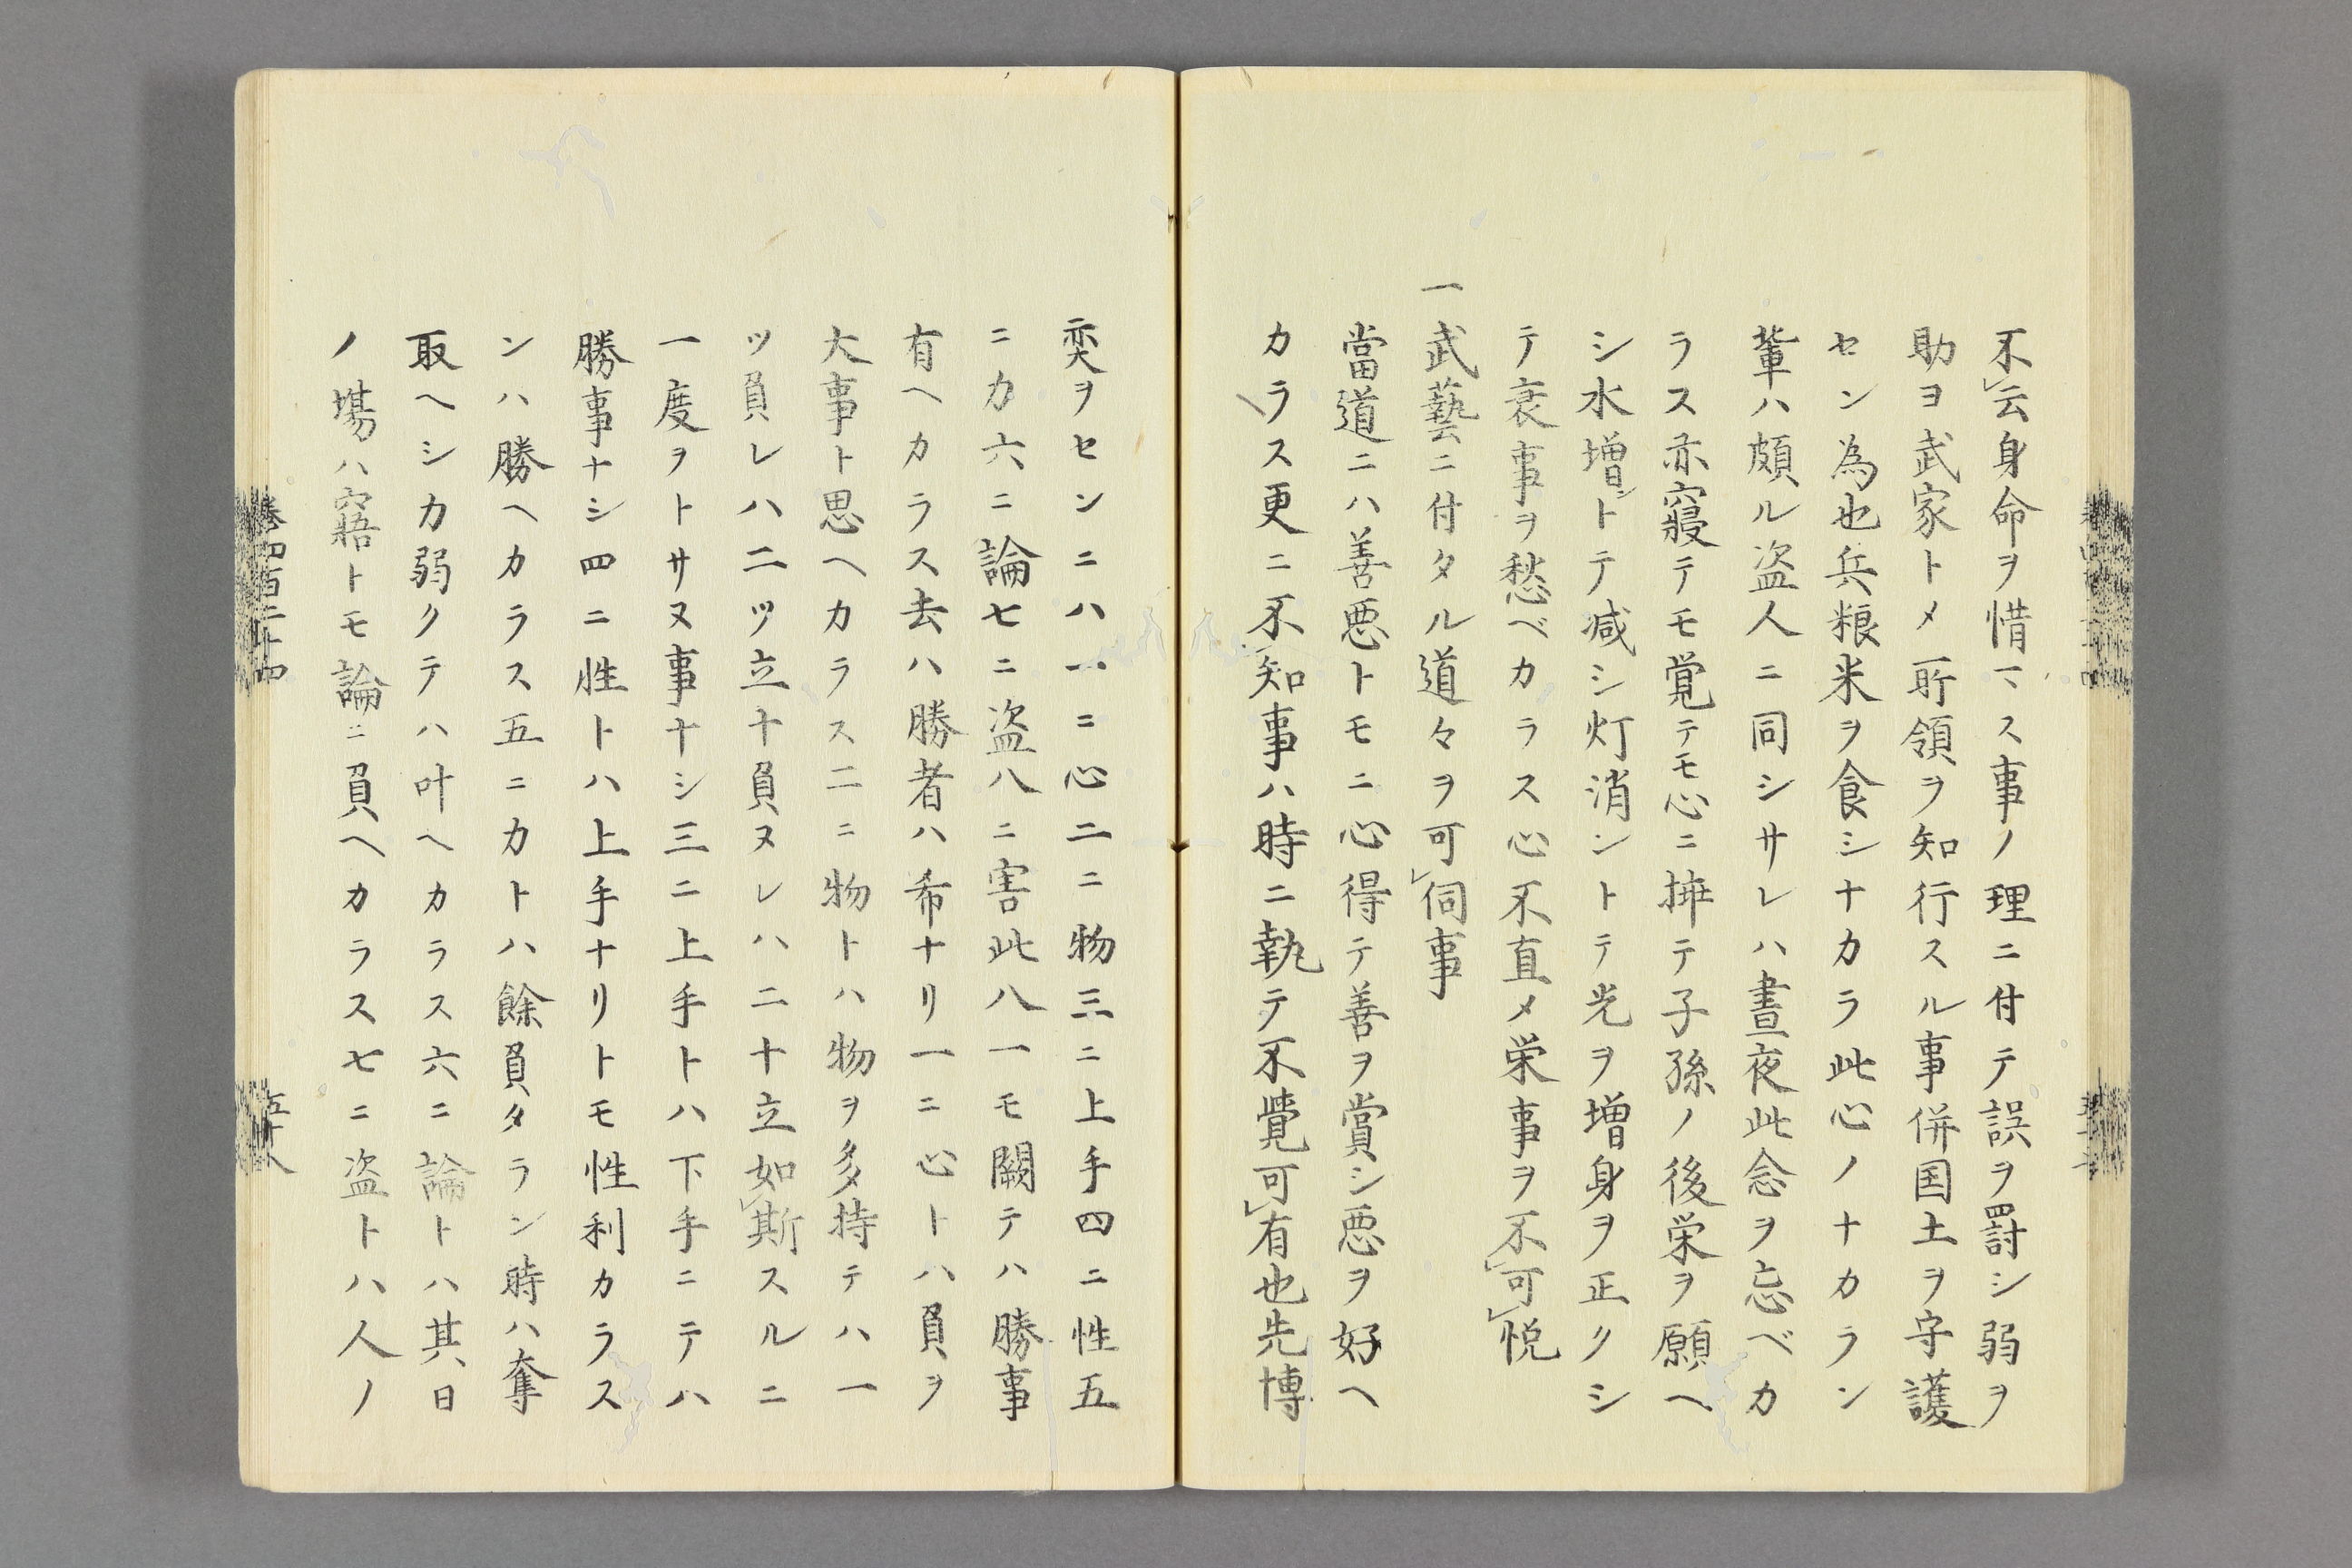 不㆑云身命ヲ惜マス事ノ理ニ付テ誤ヲ罸シ弱ヲ
助ヨ武家トメ所領ヲ知行スル事併国土ヲ守護
セン為也兵粮米ヲ食シナカラ此心ノナカラン
輩ハ頗ル盗人ニ同シサレハ晝夜此念ヲ忘ベカ
ラス亦寢テモ覚テモ心ニ挿テ子孫ノ後栄ヲ願ヘ
シ水増㆑トテ减シ灯消ントテ光ヲ増身ヲ正クシ
テ衰事ヲ愁ベカラス心不直メ栄事ヲ不㆑可㆑悦
一武藝ニ付タル道々ヲ可㆑伺事
當道ニハ善悪トモニ心得テ善ヲ賞シ悪ヲ好ヘ
カラス更ニ不知事ハ時ニ執テ不覺可㆑有也先博
奕ヲセンニハ一ニ心二ニ物三ニ上手四ニ性五
ニカ六ニ論七ニ盗八ニ害此八一モ闕テハ勝事
有ヘカラス去ハ勝者ハ希ナリ一ニ心トハ負ヲ
大事ト思ヘカラス二ニ物トハ物ヲ多持テハ一
ツ負レハ二ツ立十負ヌレハ二十立如㆑斯スルニ
一度ヲトサヌ事ナシ三ニ上手トハ下手ニテハ
勝事ナシ四ニ性トハ上手ナリトモ性利カラス
ンハ勝ヘカラス五ニカトハ餘負タラン時ハ奪
取ヘシカ弱クテハ叶ヘカラス六ニ論トハ其日
ノ塲ハ寤トモ論ニ負ヘカラス七ニ盗トハ人ノ
巻四百二十四
五十八